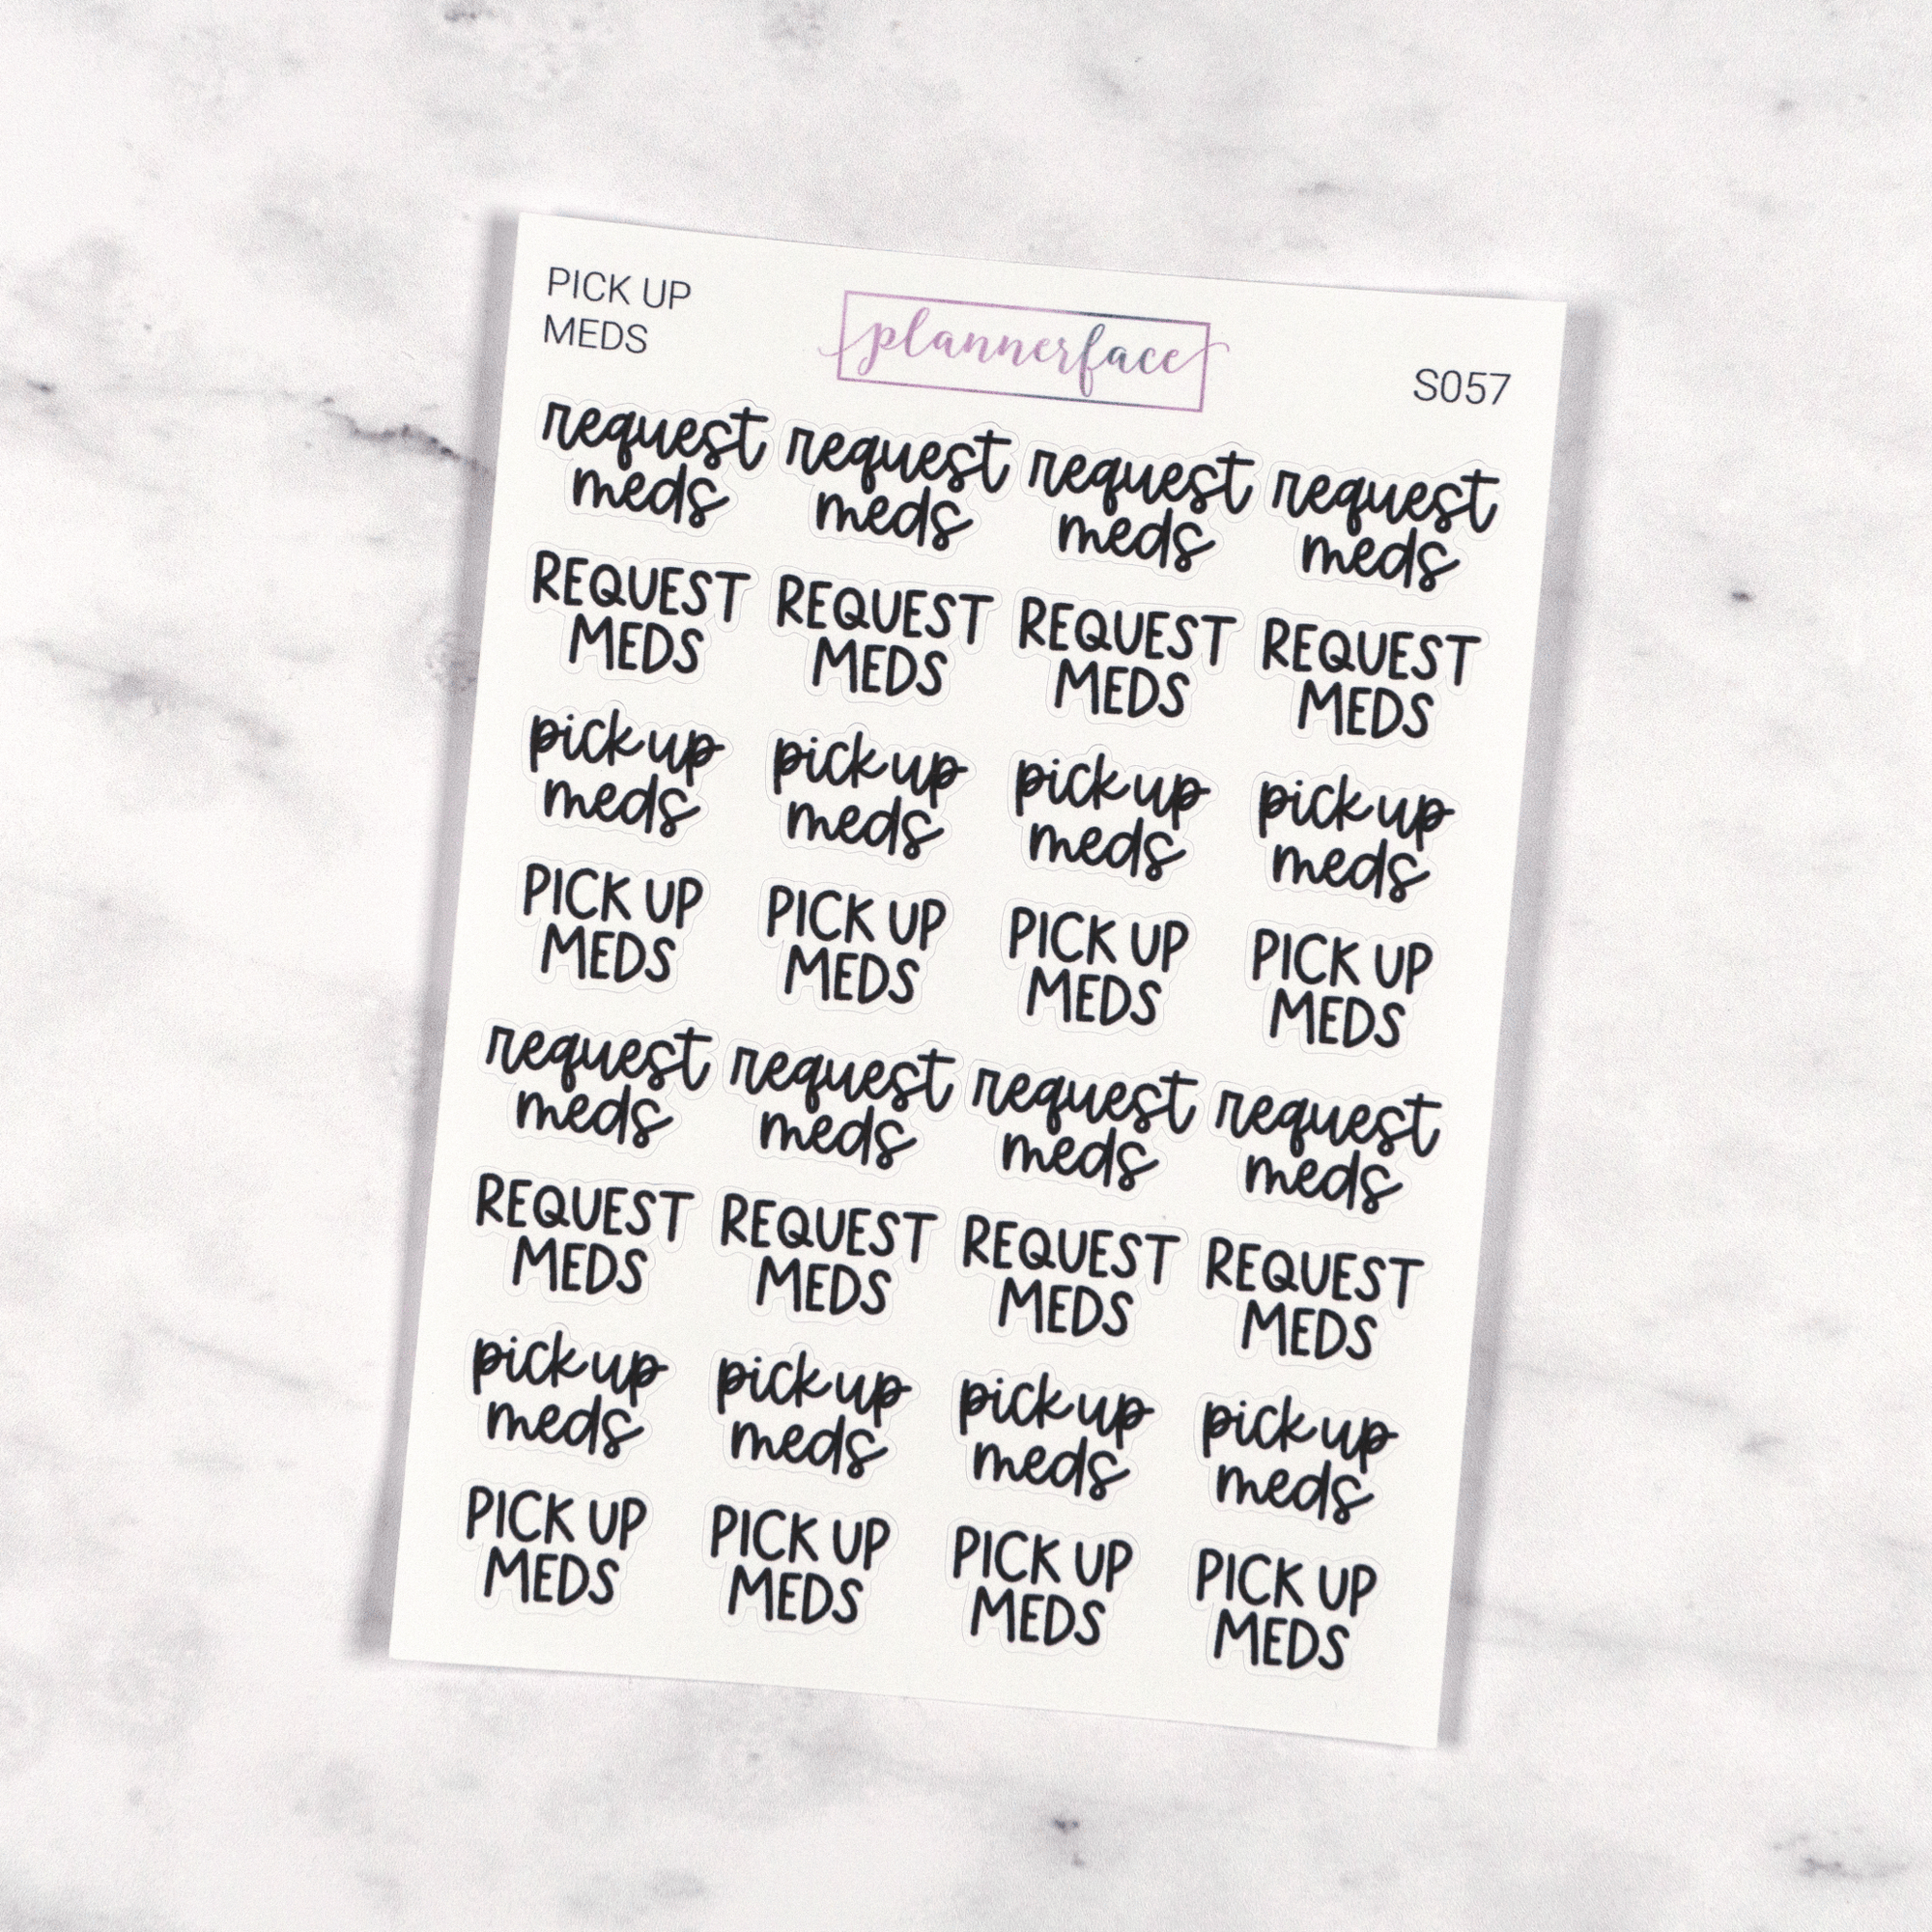 PICK UP
MEDS
plannerface
S057
request request request request
meds meds meds meds
REQUEST REQUEST REQUEST REQUEST
MEDS MEDS MEDS MEDS
pick up pick up pick up pick up
meds meds meds meds
PICK UP PICK UP PICK UP PICK UP
MEDS MEDS MEDS MEDS
request request request request
meds meds meds meds
REQUEST REQUEST REQUEST REQUEST
MEDS MEDS MEDS MEDS
pick up pick up pick up pick up
meds meds meds meds
PICK UP PICK UP PICK UP PICK UP
MEDS MEDS MEDS MEDS